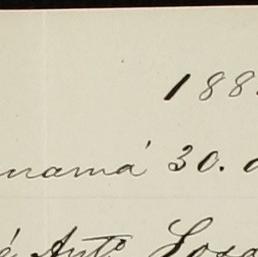 188
namá 30. d
é Anto Loza